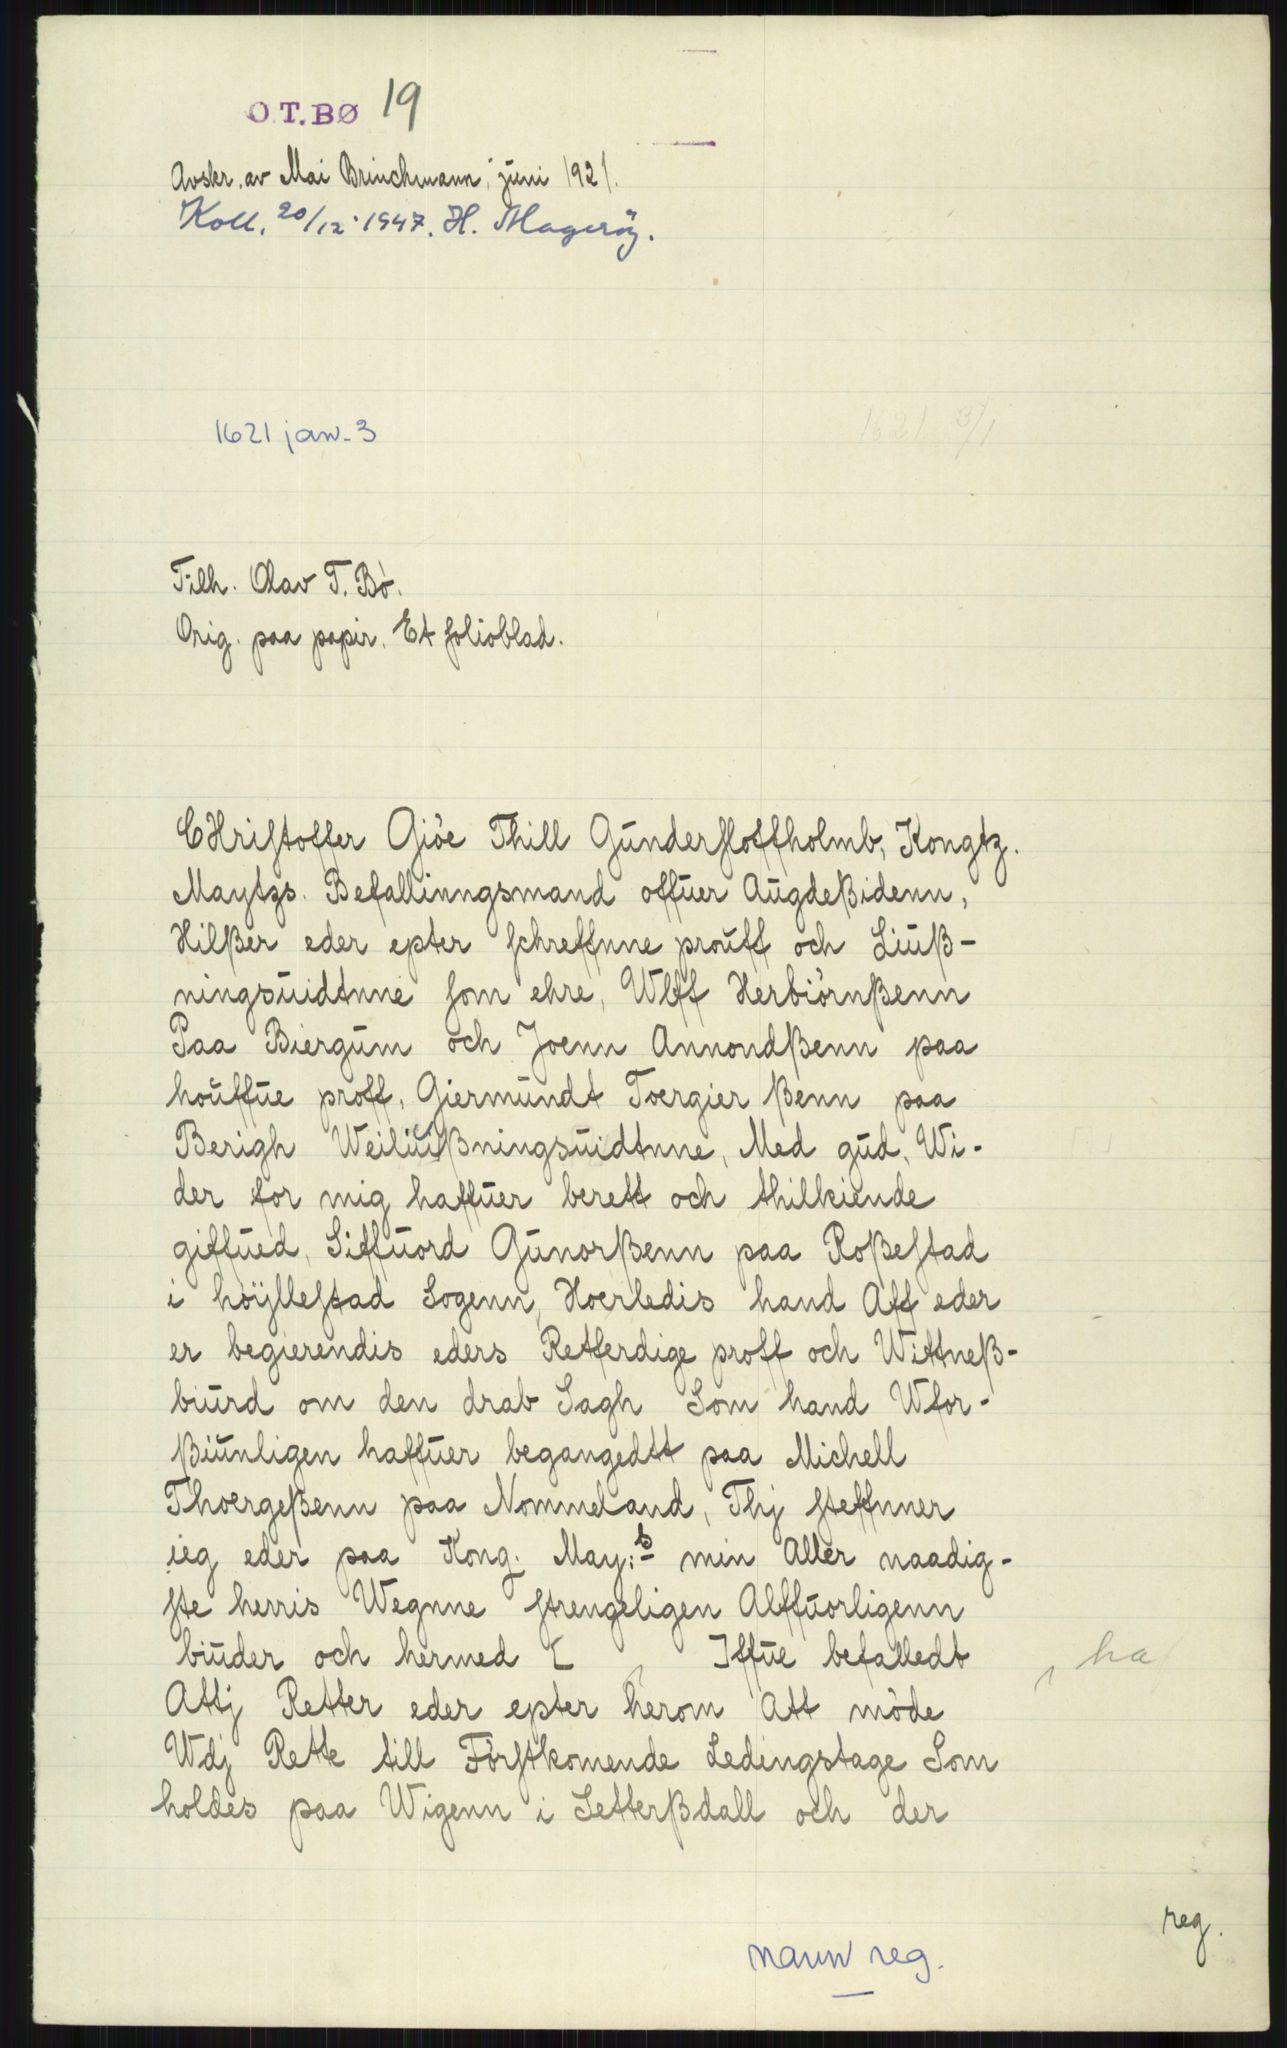 O.T.BØ 19
Avskr. av Mai Brinchmann, juni 1921.
Koll. 20/12 1947. H. Magerøy.
1621 jan. 3
1621 3/1
Tilh. Olav T. Bø.
Orig. paa papir. Et folioblad.
CHriſtoffer Giöe Thill Gunderſloffholmb, Kongtz.
Maytzs. Befallinngsmand offuer Augdeßidenn,
Hilßer eder epter ſchreffnne prouff och Liuß-
ningsuidtnne ſom ehre, Wlff Herbiörnßenn
Paa Biergum och Joenn Annondßenn paa
houffue proff, Giermundt Toergierßenn paa
Berigh Weiliußningsuidtnne, Med gud, Wi-
der for mig haffuer berett och thilkiende
giffued, Siffuord Gunorßenn paa Roßeſtad
i höylleſtad Sogenn, Hoerledis hand Aff eder
er begierendis eders Retferdige proff och Wittneß-
biurd om den drab Sagh Som hand Wfor-
ßiunligen haffuer begangedtt paa Michell
Thoergeßenn paa Nommeland, Thj ſteffnner
ieg eder paa Kong. May:s min Aller naadig-
ſte herris Wegnne ſtrengeligen Alffuorligenn
biuder och hermed [ ]ffue befalledt ha
Attj Retter eder epter herom Att möde
Wdj Rette till Förſtkomende Ledingstage Som
holdes paa Wigenn i Setterßdall och der
reg.
navn reg.